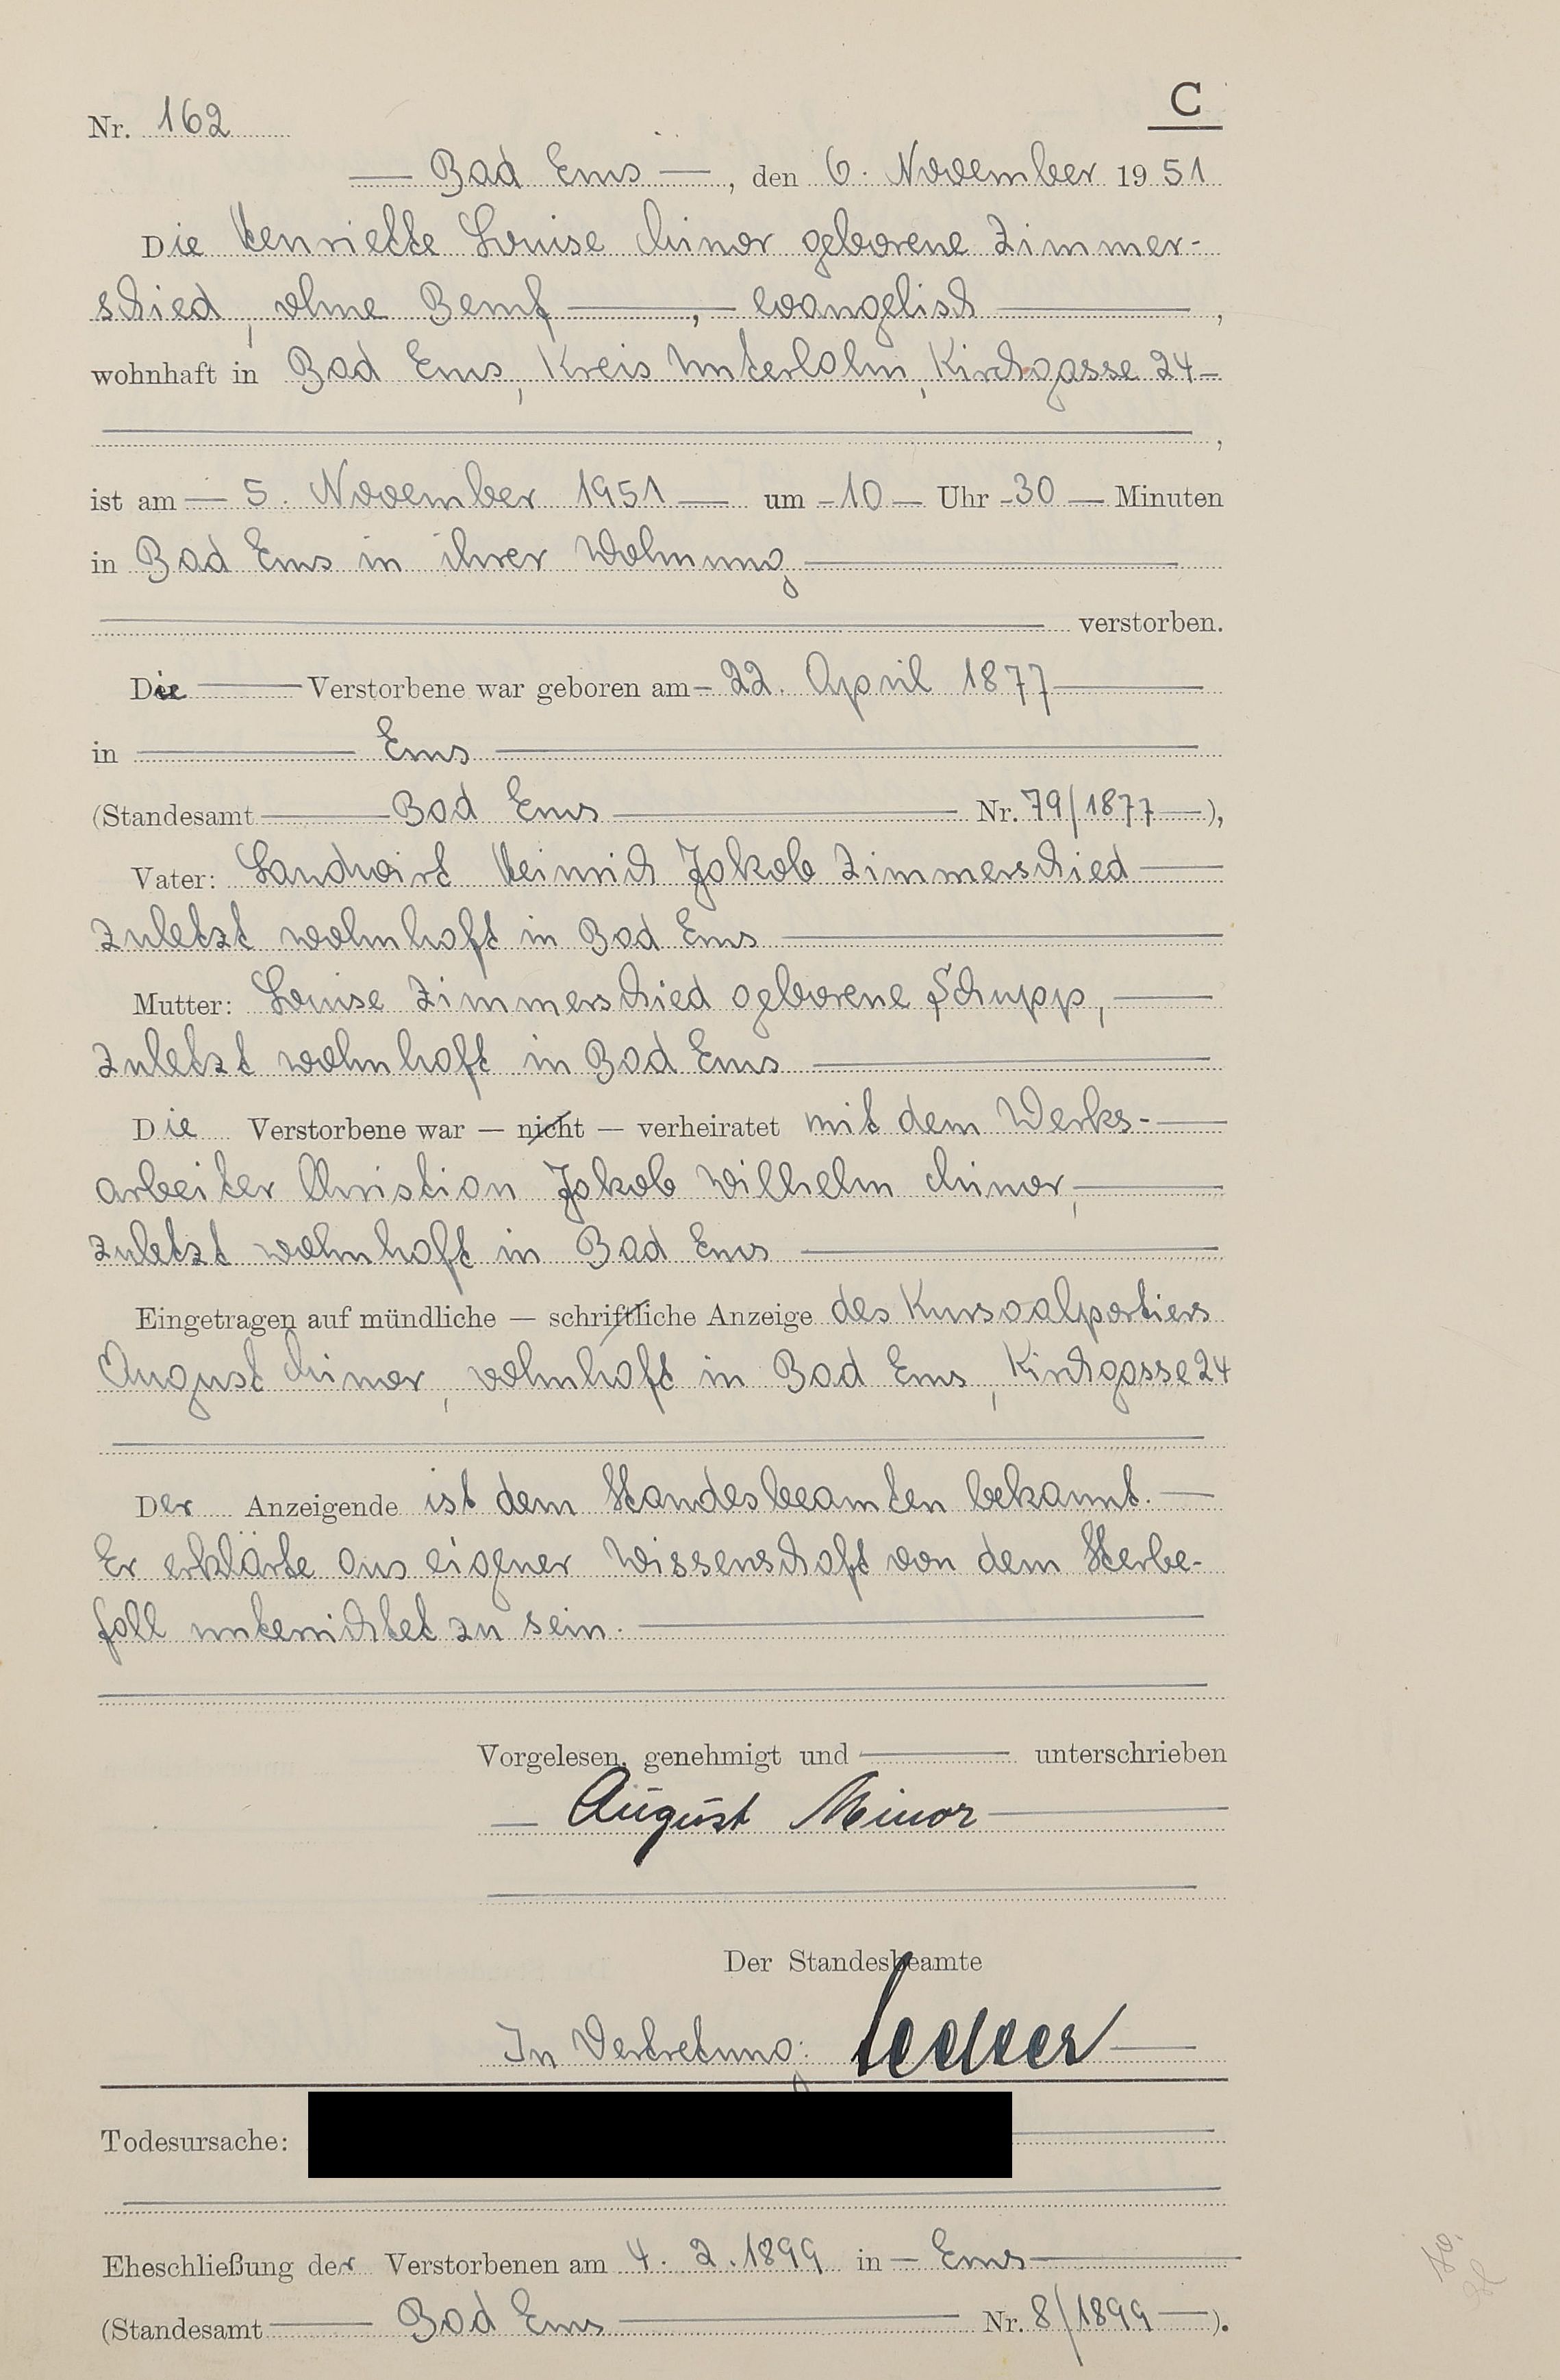 C
Nr. 162
— Bad Ems —, den 6. November 1951
Die Henriette Louise Minor geborene Zimmer-
schied, ohne Beruf —, — evangelisch —,
wohnhaft in Bad Ems, Kreis Unterlahn, Kirchgasse 24 —
,
ist am — 5. November 1951 — um — 10 — Uhr — 30 — Minuten
in Bad Ems in ihrer Wohnung —
verstorben.
Die — Verstorbene war geboren am — 22. April 1877 —
in — Ems —
(Standesamt — Bad Ems — Nr. 79/1877 —),
Vater: Landwirt Heinrich Jakob Zimmerschied —
zuletzt wohnhaft in Bad Ems —
Mutter: Louise Zimmerschied geborene Schupp, —
zuletzt wohnhaft in Bad Ems —
Die Verstorbene war — nicht — verheiratet mit dem Werks- —
arbeiter Christian Jakob Wilhelm Minor, —
zuletzt wohnhaft in Bad Ems —
Eingetragen auf mündliche — schriftliche Anzeige des Kursaalportiers
August Minor, wohnhaft in Bad Ems, Kirchgasse 24
Der Anzeigende ist dem Standesbeamten bekannt. —
Er erklärte aus eigner Wissenschaft von dem Sterbe-
fall unterrichtet zu sein. —
Vorgelesen, genehmigt und — unterschrieben
— August Minor —
Der Standesbeamte
In Vertretung:
Todesursache:
Eheschließung der Verstorbenen am 4. 2. 1899 in — Ems —
(Standesamt — Bad Ems — Nr. 8/1899 —).